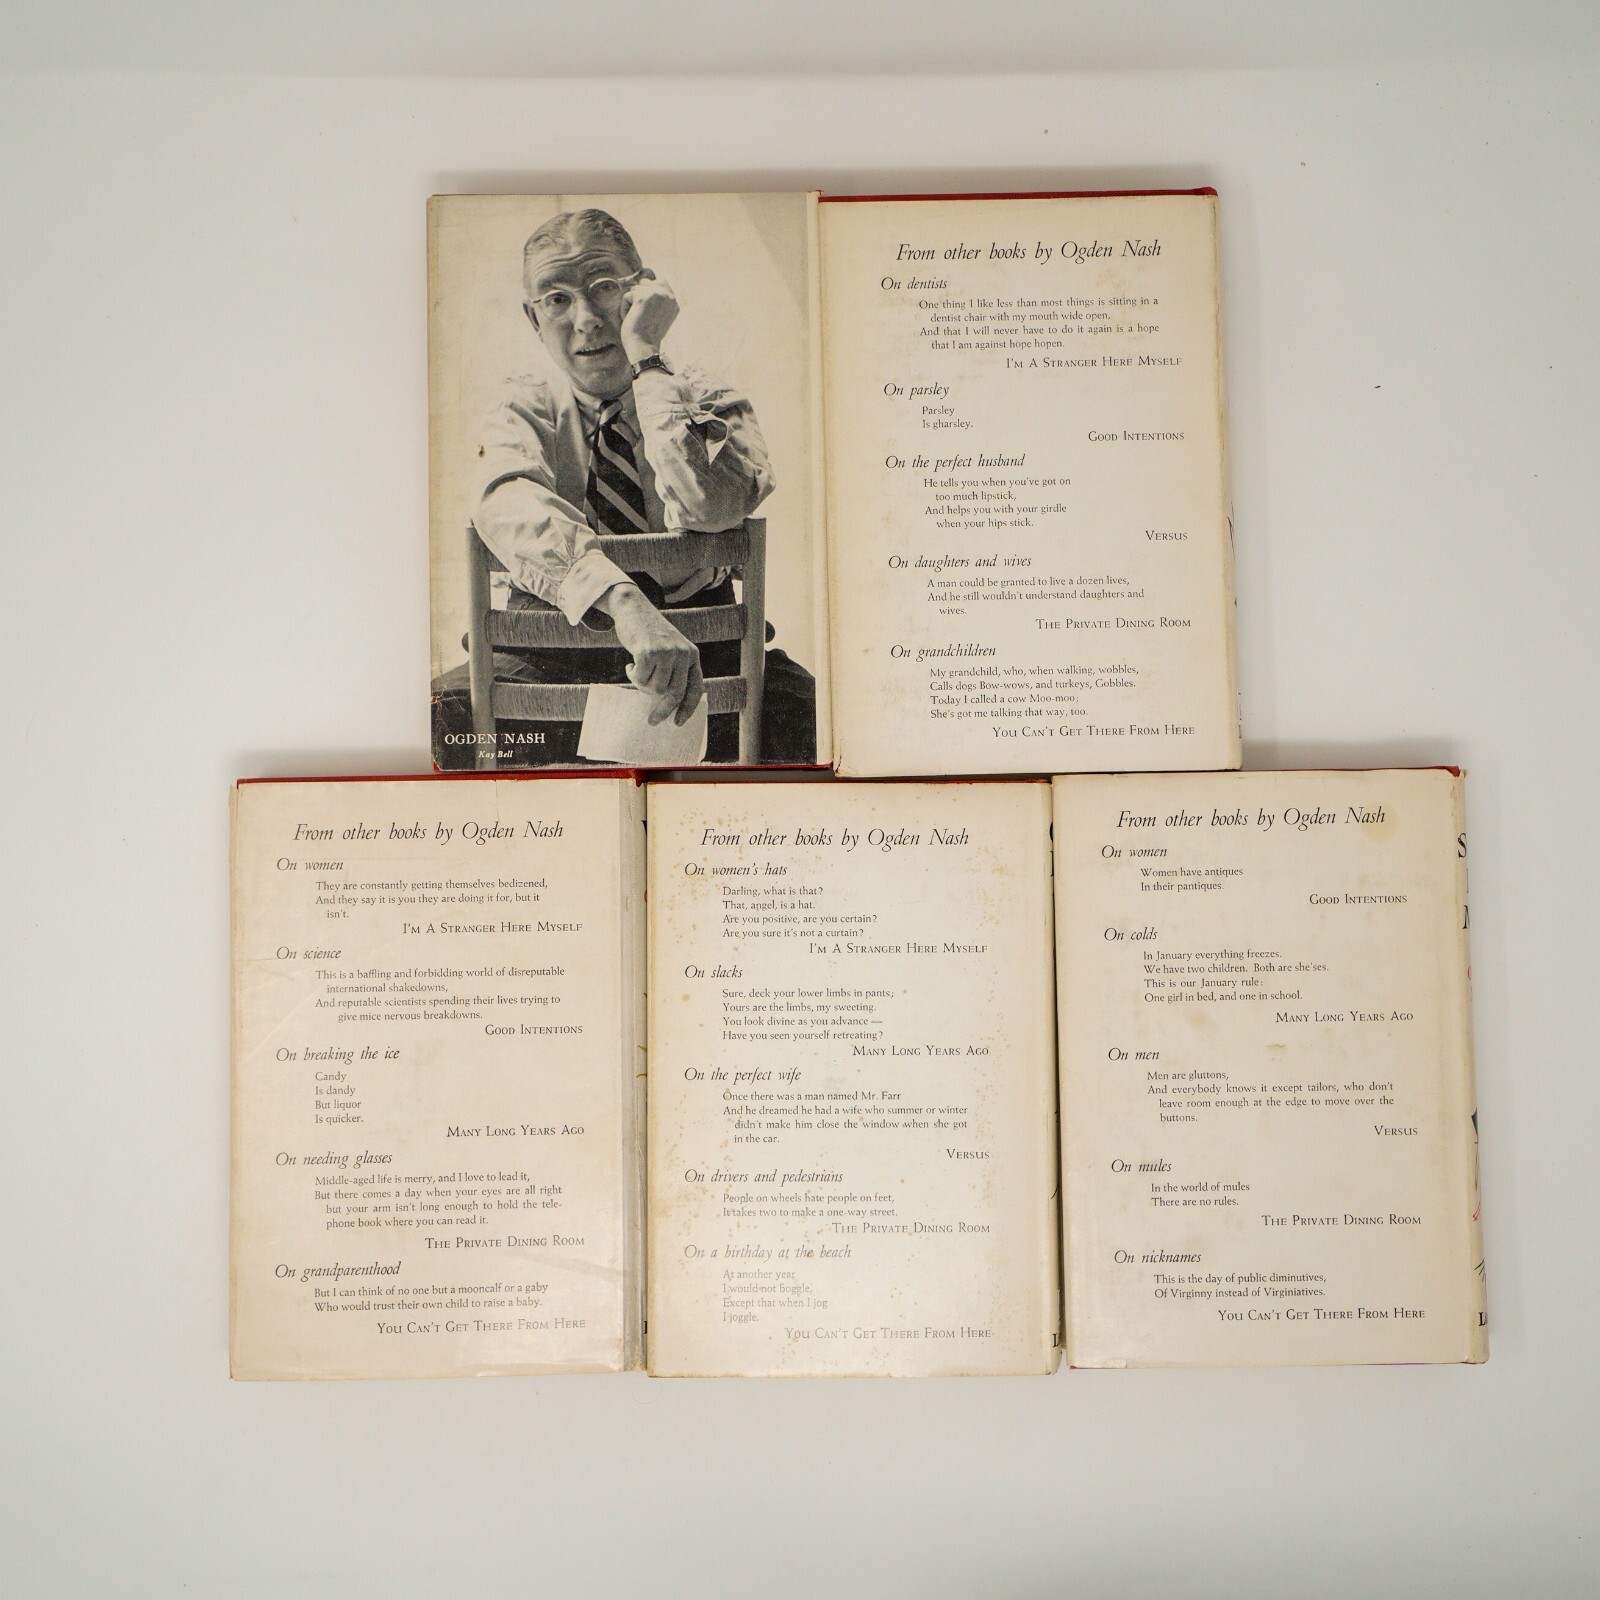 OGDEN NASH
Kay Bell
From other books by Ogden Nash
On dentists
One thing I like less than most things is sitting in a
dentist chair with my mouth wide open,
And that I will never have to do it again is a hope
that I am against hope hopen.
I'M A STRANGER HERE MYSELF
On parsley
Parsley
Is gharsley.
GOOD INTENTIONS
On the perfect husband
He tells you when you've got on
too much lipstick,
And helps you with your girdle
when your hips stick.
VERSUS
On daughters and wives
A man could be granted to live a dozen lives,
And he still wouldn't understand daughters and
wives.
THE PRIVATE DINING ROOM
On grandchildren
My grandchild, who, when walking, wobbles,
Calls dogs Bow-wows, and turkeys, Gobbles.
Today I called a cow Moo-moo;
She's got me talking that way, too.
YOU CAN'T GET THERE FROM HERE
From other books by Ogden Nash
On women
They are constantly getting themselves bedizened,
And they say it is you they are doing it for, but it
isn't.
I'M A STRANGER HERE MYSELF
On science
This is a baffling and forbidding world of disreputable
international shakedowns,
And reputable scientists spending their lives trying to
give mice nervous breakdowns.
GOOD INTENTIONS
On breaking the ice
Candy
Is dandy
But liquor
Is quicker.
MANY LONG YEARS AGO
On needing glasses
Middle-aged life is merry, and I love to lead it,
But there comes a day when your eyes are all right
but your arm isn't long enough to hold the tele-
phone book where you can read it.
THE PRIVATE DINING ROOM
On grandparenthood
But I can think of no one but a mooncalf or a gaby
Who would trust their own child to raise a baby.
YOU CAN'T GET THERE FROM HERE
From other books by Ogden Nash
On women's hats
Darling, what is that?
That, angel, is a hat.
Are you positive, are you certain?
Are you sure it's not a curtain?
I'M A STRANGER HERE MYSELF
On slacks
Sure, deck your lower limbs in pants;
Yours are the limbs, my sweeting.
You look divine as you advance —
Have you seen yourself retreating?
MANY LONG YEARS AGO
On the perfect wife
Once there was a man named Mr. Farr
And he dreamed he had a wife who summer or winter
didn't make him close the window when she got
in the car.
VERSUS
On drivers and pedestrians
People on wheels hate people on feet,
It takes two to make a one-way street.
THE PRIVATE DINING ROOM
On a birthday at the beach
At another year
I would not boggle,
Except that when I jog
I joggle.
YOU CAN'T GET THERE FROM HERE
From other books by Ogden Nash
On women
Women have antiques
In their pantiques.
GOOD INTENTIONS
On colds
In January everything freezes.
We have two children. Both are she'ses.
This is our January rule:
One girl in bed, and one in school.
MANY LONG YEARS AGO
On men
Men are gluttons,
And everybody knows it except tailors, who don't
leave room enough at the edge to move over the
buttons.
VERSUS
On mules
In the world of mules
There are no rules.
THE PRIVATE DINING ROOM
On nicknames
This is the day of public diminutives,
Of Virginny instead of Virginiatives.
YOU CAN'T GET THERE FROM HERE